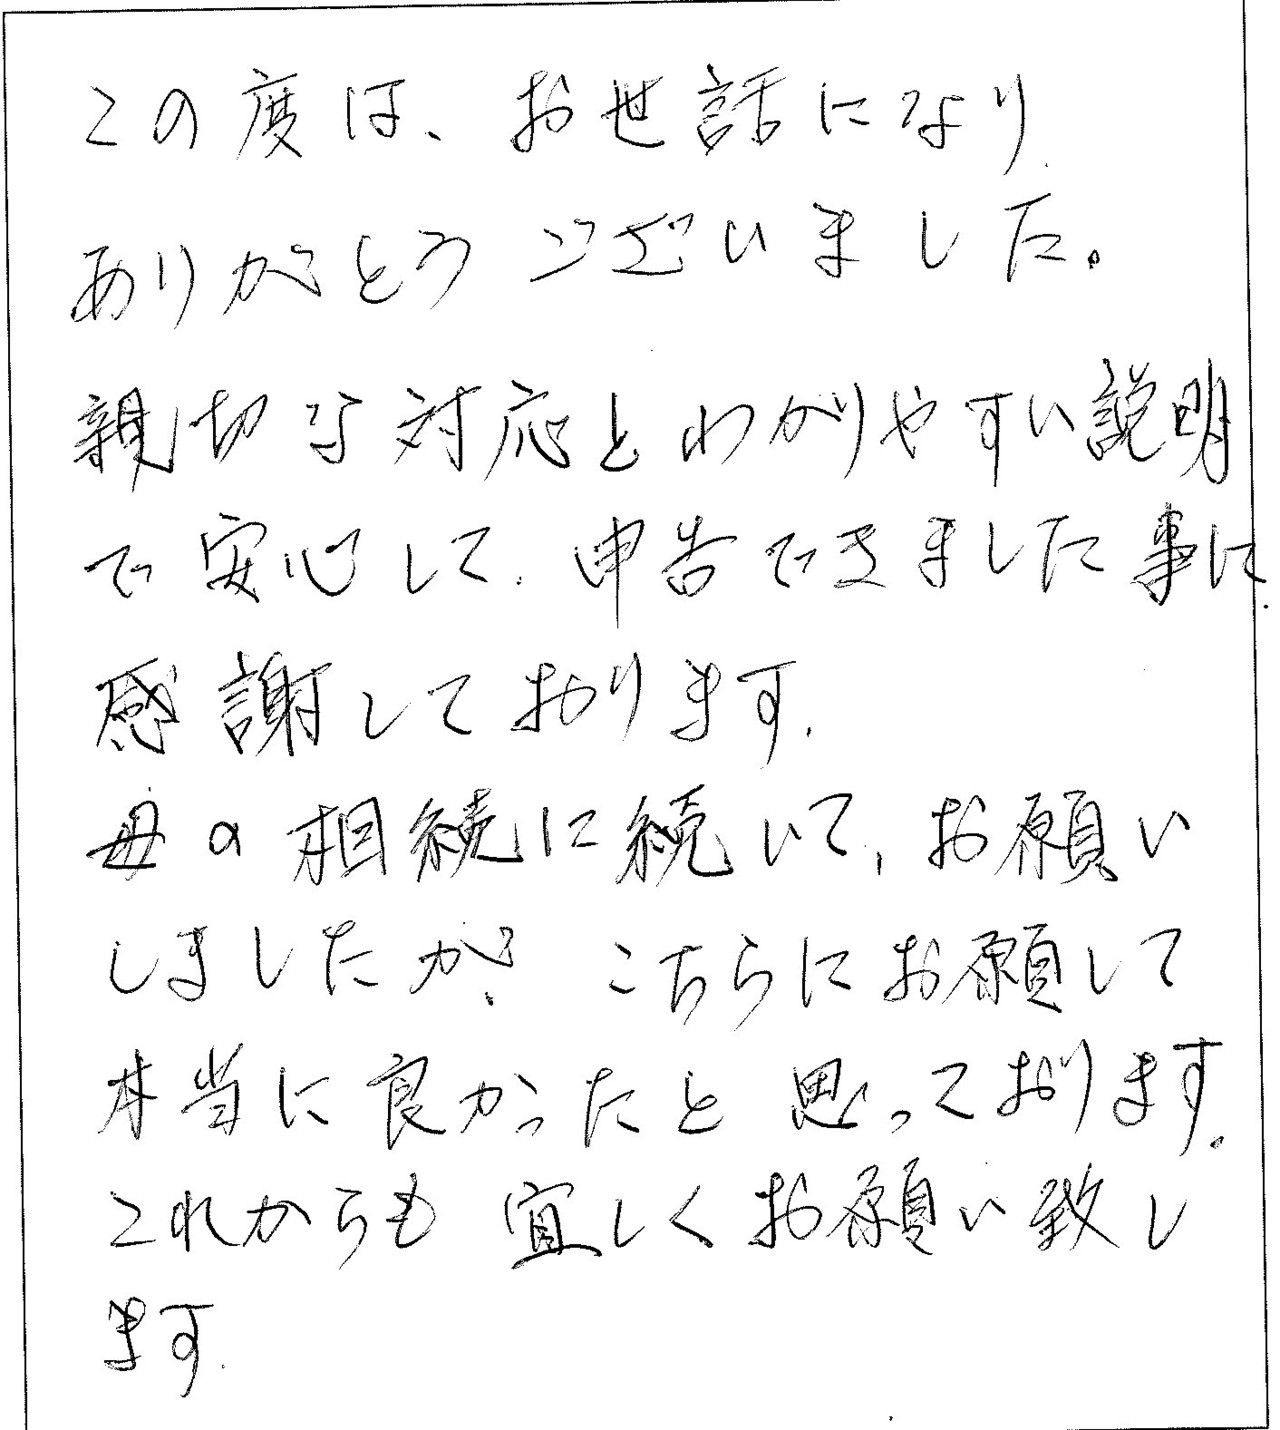 この度は、お世話になり
ありがとうございました。
親切な対応とわかりやすい説明
で安心して、申告できました事に
感謝しております。
母の相続に続いて、お願い
しましたが、こちらにお願して
本当に良かったと思っております。
これからも宜しくお願い致し
ます。